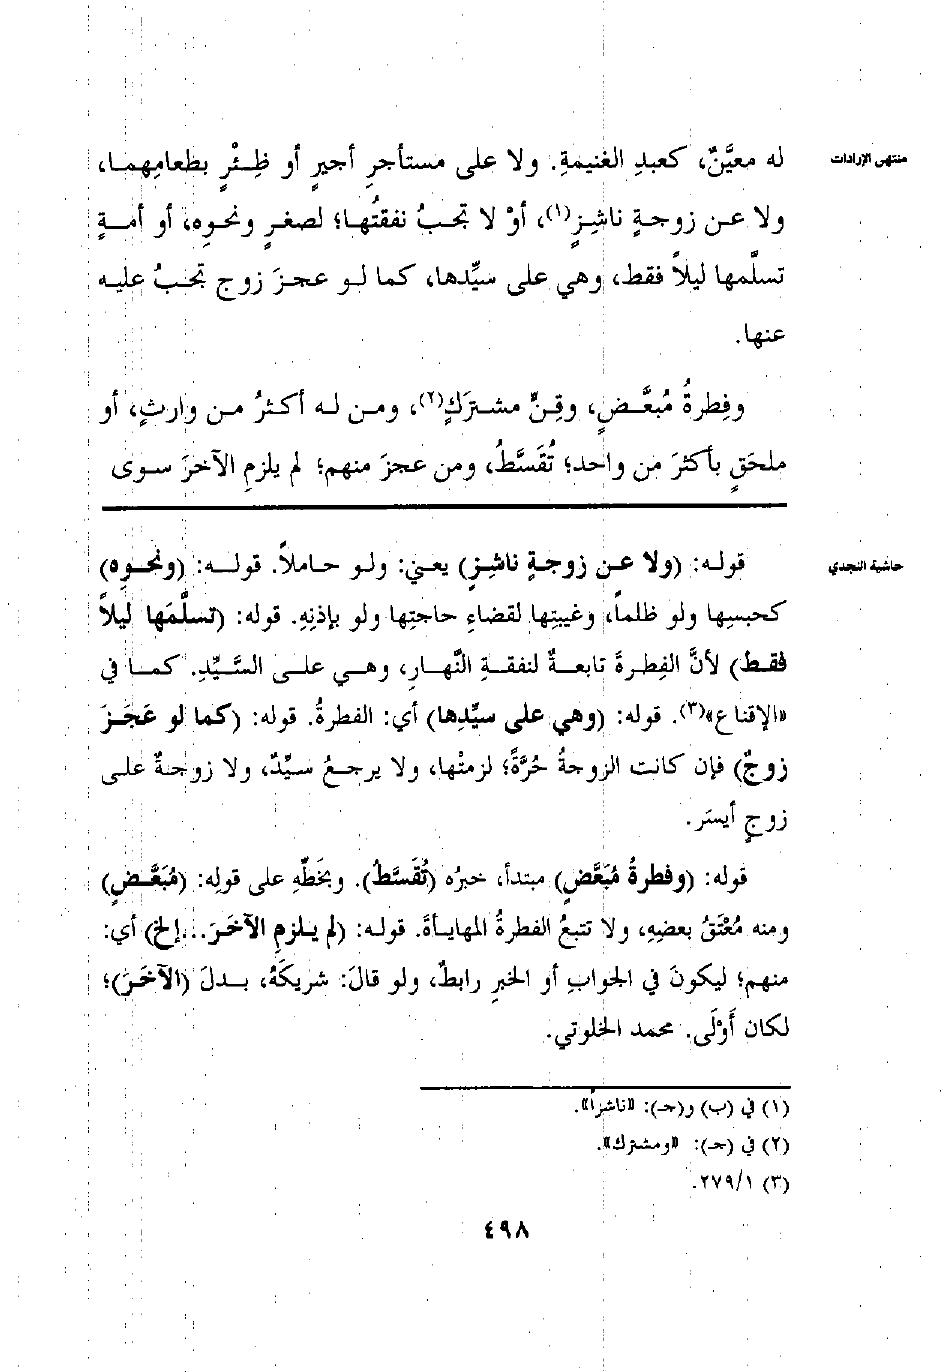 منتهى الإرادات
له معيَّنٌ، كعبدِ الغنيمةِ. ولا على مستأجرِ أجيرٍ أو ظِئْرٍ بطعامِهما،
ولا عن زوجةٍ ناشِزٍ(١)، أوْ لا تجبُ نفقتُها؛ لصغرٍ ونحوِه، أو أمةٍ
تسلَّمها ليلاً فقط، وهي على سيِّدها، كما لو عجزَ زوج تجبُ عليه
عنها.
وفِطرةُ مُبعَّضٍ، وقِنٍّ مشترَكٍ(٢)، ومن له أكثرُ من وارثٍ، أو
ملحَقٍ بأكثرَ من واحد؛ تُقَسَّطُ، ومن عجزَ منهم؛ لم يلزمِ الآخرَ سوى
حاشية النجدي
قوله: (ولا عن زوجةٍ ناشِزٍ) يعني: ولو حاملاً. قوله: (ونحوِه)
كحبسِها ولو ظلماً، وغيبتِها لقضاءِ حاجتِها ولو بإذنِهِ. قوله: (تسلَّمَها ليلاً
فقط) لأنَّ الفِطرةَ تابعةٌ لنفقةِ النَّهارِ، وهي على السَّيِّدِ. كما في
«الإقناع»(٣). قوله: (وهي على سيِّدِها) أي: الفطرةُ. قوله: (كما لو عَجَزَ
زوجٌ) فإن كانت الزوجةُ حُرَّةً؛ لزمتْها، ولا يرجعُ سيِّدٌ، ولا زوجةٌ على
زوجٍ أيسَر.
قوله: (وفطرةُ مُبَعَّضٍ) مبتدأ، خبرُه (تُقَسَّطُ). وبخَطِّهِ على قولِه: (مُبَعَّضٍ)
ومنه مُعْتَقُ بعضِهِ، ولا تتبعُ الفطرةُ المهايأةَ. قوله: (لم يلزمِ الآخَرَ...إلخ) أي:
منهم؛ ليكونَ في الجوابِ أو الخبرِ رابطٌ، ولو قالَ: شريكَهُ، بدلَ (الآخَرَ)؛
لكان أَوْلَى. محمد الخلوتي.
(١) في (ب) و(جـ): «ناشزاً».
(٢) في (جـ): «ومشترك».
(٣) ٢٧٩/١.
٤٩٨